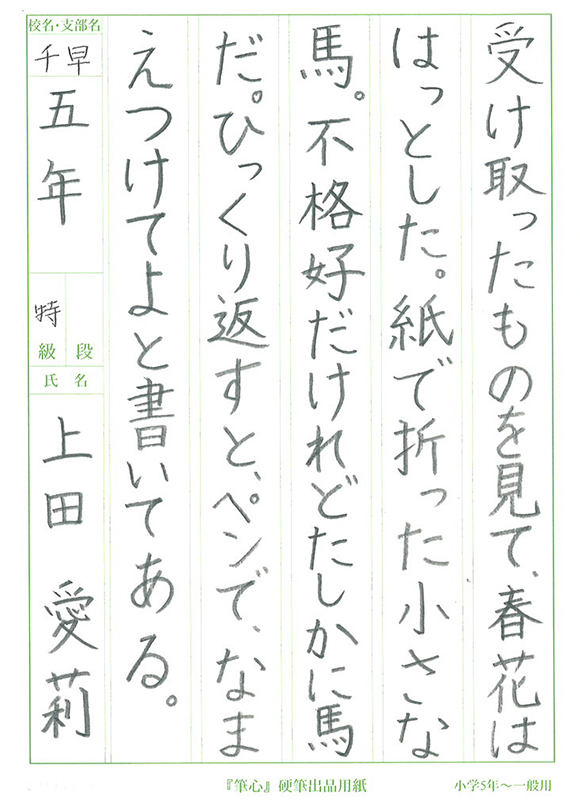 受け取ったものを見て、春花は
はっとした。紙で折った小さな
馬。不格好だけれどたしかに馬
だ。ひっくり返すと、ペンで、なま
えつけてよと書いてある。
校名・支部名
千早
五年
特
級 段
氏名
上田 愛莉
『筆心』硬筆出品用紙
小学5年〜一般用